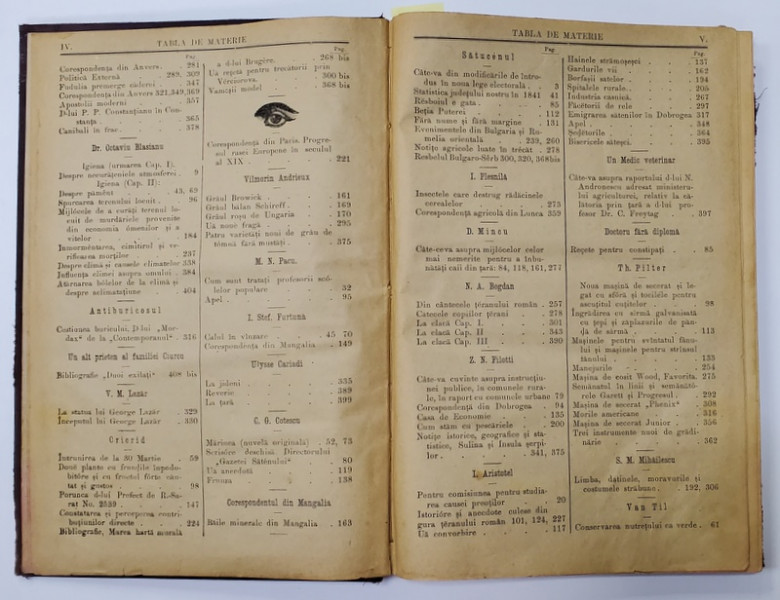 IV. TABLA DE MATERIE
Pag.
Corespondența din Anvers. 281
Politică Externă 289, 309
Fudulia premerge sărăciei 347
Corespondența din Anvers 321,349,369
Apostolii moderni 357
D-lui P. P. Constanțianu în Constanța 365
Canibali în frac 378
Dr. Octaviu Blasianu
Igiena (urmarea Cap. I).
Despre necurățeniele atmosferei 9
Igiena (Cap. II):
Despre pământ 43, 69
Spurcarea terenului locuit 96
Mijlócele de a curăți terenul locuit
de murdăriele provenite
din economia ómenilor și a
vitelor 184
Inmormêntarea, cimitirul și verificarea
morților 237
Despre climă și causele climatelor 338
Influența climei asupra omului 384
Atârnarea bólelor de la climă și
despre aclimatațiune 404
Antiburicosul
Cestiunea buricului, D-lui „Mordax"
de la „Contemporanul" 316
Un alt prieten al familiei Cuscu
Bibliografie „Duoi exilați" 408 bis
V. M. Lazăr
La statua lui George Lazăr 329
Inceputul lui George Lazăr 330
Grierid
Intrunirea de la 30 Martie 59
Doué plante cu frundile
și cu fructul fórte căutat
și gustos 98
Porunca d-lui Prefect de R.-Sărat
No. 2639 147
Constatarea și perceperea contribuțiunilor
directe 224
Bibliografie, Marea hartă murală
a d-lui Brugère 268 bis
Uă rețetă pentru trecătorii prin
Vêrciorova 300 bis
Vamițĭi model 368 bis
Corespondență din Paris. Progresul
rasei Europene în secolul
al XIX 221
Vilmorin Andrieux
Grâul Browick 161
Grâul bălan Schireff 169
Grâul roșu de Ungaria 170
Uă nouă fragă 295
Patru varietăți nouĭ de grâu de
tómnă fără mustăți 375
M. N. Pacu.
Cum sunt tratați profesorii scólelor
populare 32
Apel 95
I. Stef. Furtuna
Calul în vînzare 45 70
Corespondența din Mangalia 149
Ulysse Carindi
La jidani 335
Reverie 389
La țară 399
C. G. Cotescu
Mărióca (nuvelă originală) 52, 73
Scrisóre deschisă. Directorului
„Gazetei Sătenului" 80
Uă anecdotă 119
Frunza 138
Corespondentul din Mangalia
Băile minerale din Mangalia 163
TABLA DE MATERIE V.
Pag.
Sătucénul
Câte-va din modificările de introdus
în noua lege electorală 3
Statistica județului nostru în 1841 41
Răsboiul e gata 85
Beția Puterei 112
Fără nume și fără margine 131
Evenimentele din Bulgaria și Rumelia
orientală 239, 260
Notițe agricole luate în trécăt 278
Resbelul Bulgaro-Sêrb 300, 320, 368bis
I. Plesnilă
Insectele care destrug rădăcinele
cerealelor 273
Corespondență agricolă din Lunca 359
D. Mincu
Câte-ceva asupra mijlócelor celor
mai nemerite pentru a îmbunătăți
caii din țară: 84, 118, 161, 277
N. A. Bogdan
Din cântecele țêranului român 257
Cântecele copiilor țêrani 278
La clacă Cap. I. 301
La clacă Cap. II 343
La clacă Cap. III 390
Z. N. Pilotti
Câte-va cuvinte asupra instrucțiunei
publice, în comunele rurale,
în raport cu comunele urbane 79
Corespondență din Dobrogea 94
Casa de Economie 135
Cum stăm cu pescăriele 200
Notițe istorice, geografice și statistice,
Sulina și Insula șerpilor
341, 375
I. Aristotel
Pentru comisiunea pentru studiarea
causei preoților 20
Istorióre și anecdote culese din
gura țêranului român 101, 124, 227
Uă convorbire 117
Pag.
Hainele strămoșesci 137
Gardurile vii 162
Borfașii satelor 194
Spitalele rurale 205
Industria casnică 267
Făcétorii de rele 297
Emigrarea sătenilor în Dobrogea 317
Apel 348
Șeḑétorile 364
Bisericele sătesci 395
Un Medic veterinar
Câte-va asupra raportului d-lui N.
Andronescu adresat ministerului
agriculturei, relativ la sălătoria
prin țară a d-lui profesor
Dr. C. Freytag 397
Doctoru fără diplomă
Rețete pentru constipați 85
Th. Pilter
Noua mașină de secerat și legat
cu sfóră și tocilele pentru
ascuțitul cuțitelor 98
Ingrădirea cu sîrmă galvanisată
cu țepi și zăplazurile de pândă
de sârmă 113
Mașinele pentru evîntatul fânului
și mașinele pentru strînsul
fânului 133
Manejurile 254
Mașina de cosit Wood, Favorita. 275
Semănatul în linii și semănătórele
Garett și Progresul 292
Mașina de secerat „Phenix" 308
Morile americane 316
Mașina de secerat Junior 356
Trei instrumente noui de grădinărie
362
S. M. Mihailescu
Limba, datinele, moravurile și
costumele străbune 192, 306
Van Til
Conservarea nutrețului ca verde 61